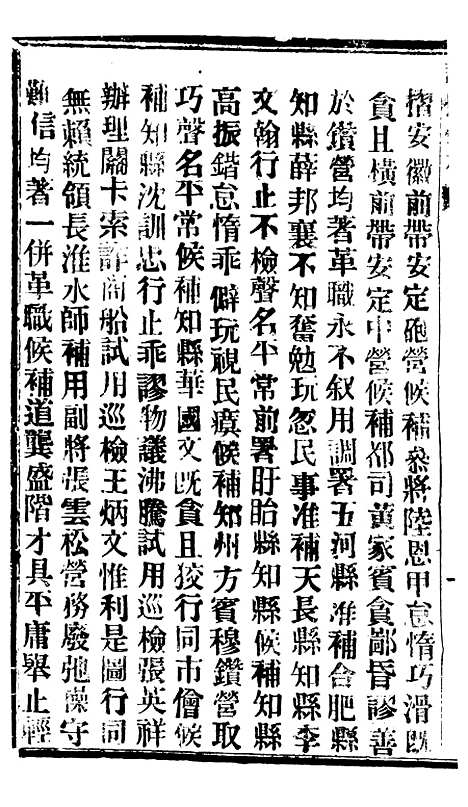 摺安徽前帶安定砲營候補參將陸恩甲怠惰巧滑既
貪且橫前帶安定中營候補都司黃家賓貪鄙昏謬善
於鑽營均著革職永不敘用調署五河縣准補合肥縣
知縣薛邦襄不知奮勉玩忽民事准補天長縣知縣李
文翰行止不檢聲名平常前署盱眙縣知縣候補知縣
高振鍇怠惰乖僻玩視民瘼候補知州方賓穆鑽營取
巧聲名平常候補知縣華國文既貪且狡行同市儈候
補知縣沈訓忠行止乖謬物議沸騰試用巡檢張英祥
辦理關卡索詐商船試用巡檢王炳文惟利是圖行同
無賴統領長淮水師補用副將張雲松營務廢弛操守
難信均著一併革職候補道龔盛階才具平庸舉止輕